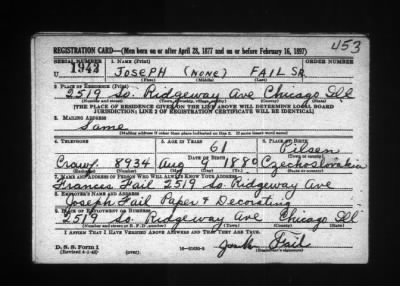 453
REGISTRATION CARD—(Men born on or after April 28, 1877 and on or before February 16, 1897)
SERIAL NUMBER 1. NAME (Print) ORDER NUMBER
U 1942 JOSEPH (NONE) FAIL SR.
(First) (Middle) (Last)
2. PLACE OF RESIDENCE (Print)
2519 So. Ridgeway Ave Chicago Ill
(Number and street) (Town, township, village, or city) (County) (State)
[THE PLACE OF RESIDENCE GIVEN ON THE LINE ABOVE WILL DETERMINE LOCAL BOARD
JURISDICTION; LINE 2 OF REGISTRATION CERTIFICATE WILL BE IDENTICAL]
3. MAILING ADDRESS
Same
(Mailing address if other than place indicated on line 2. If same insert word same)
4. TELEPHONE 5. AGE IN YEARS 6. PLACE OF BIRTH
61 Pilsen
DATE OF BIRTH (Town or county)
Crawf. 8934 Aug 9 1880 Czechoslovakia
(Exchange) (Number) (Mo.) (Day) (Yr.) (State or country)
7. NAME AND ADDRESS OF PERSON WHO WILL ALWAYS KNOW YOUR ADDRESS
Frances Fail 2519 So. Ridgeway Ave
8. EMPLOYER'S NAME AND ADDRESS
Joseph Fail Paper & Decorating
9. PLACE OF EMPLOYMENT OR BUSINESS
2519 So. Ridgeway Ave Chicago Ill
(Number and street or R. F. D. number) (Town) (County) (State)
I AFFIRM THAT I HAVE VERIFIED ABOVE ANSWERS AND THAT THEY ARE TRUE.
D. S. S. Form 1
(Revised 4-1-42) (over) Fail
(Registrant's signature)